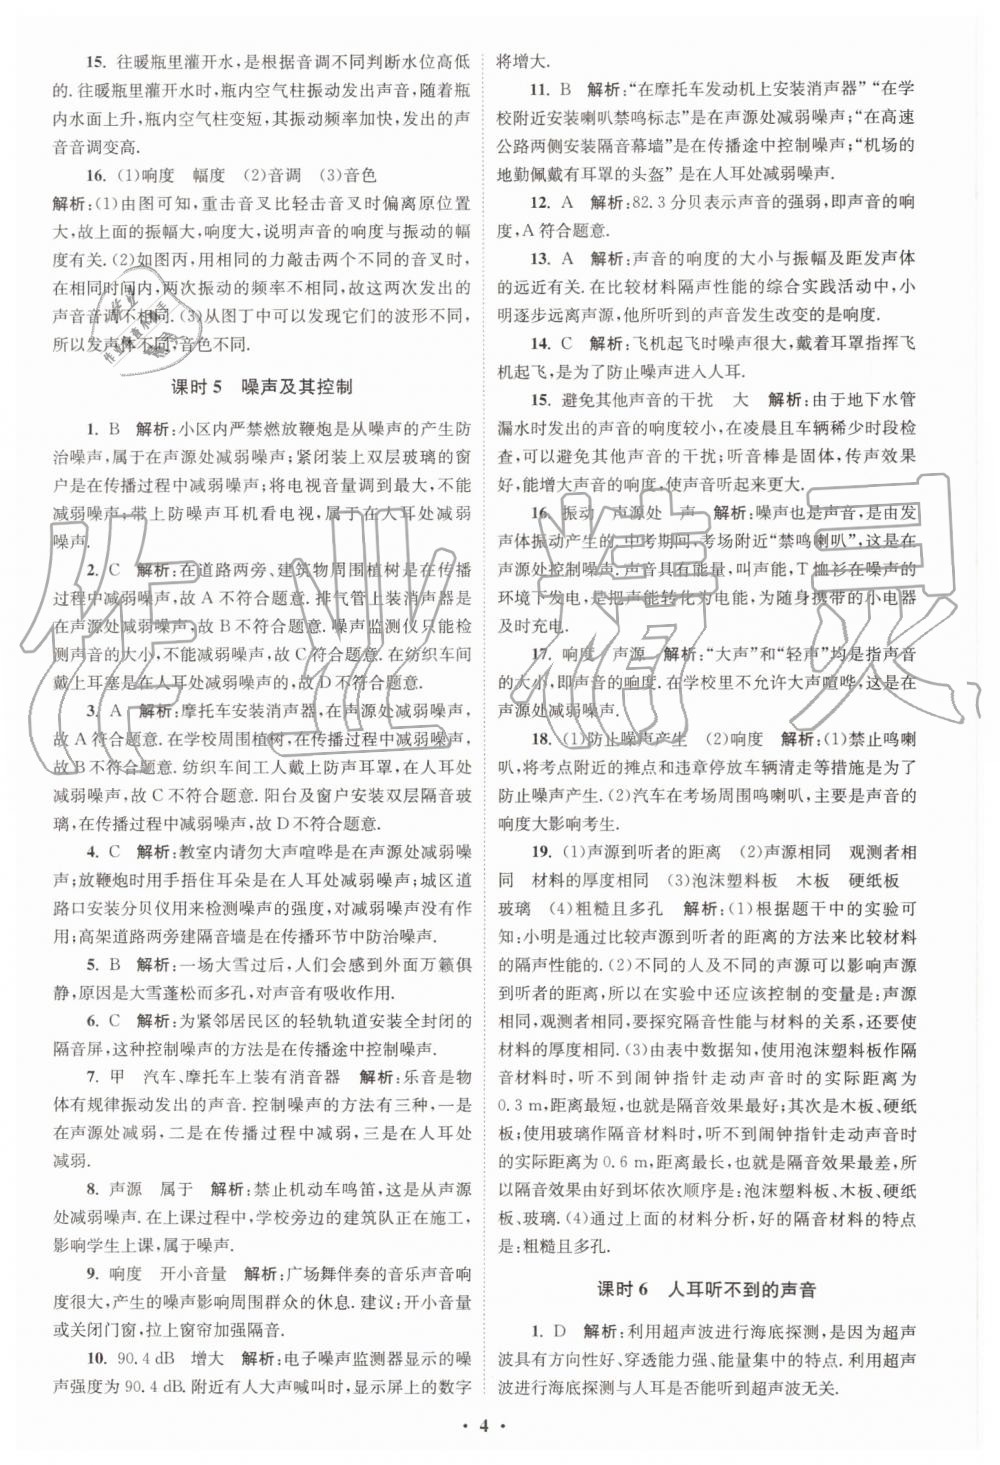 15. 往暖瓶里灌开水,是根据音调不同判断水位高低
的. 往暖瓶里灌开水时,瓶内空气柱振动发出声音,随着瓶
内水面上升,瓶内空气柱变短,其振动频率加快,发出的声
音音调变高.
16. (1)响度 幅度 (2)音调 (3)音色
解析:(1)由图可知,重击音叉比轻击音叉时偏离原位置
大,故上面的振幅大,响度大,说明声音的响度与振动的幅
度有关.(2)如图丙,用相同的力敲击两个不同的音叉时,
在相同时间内,两次振动的频率不相同,故这两次发出的
声音音调不相同.(3)从图丁中可以发现它们的波形不同,
所以发声体不同,音色不同.
课时 5 噪声及其控制
1. B 解析:小区内严禁燃放鞭炮是从噪声的产生防
治噪声,属于在声源处减弱噪声;紧闭装上双层玻璃的窗
户是在传播过程中减弱噪声;将电视音量调到最大,不能
减弱噪声;带上防噪声耳机看电视,属于在人耳处减弱
噪声.
2. C 解析:在道路两旁、建筑物周围植树是在传播
过程中减弱噪声,故 A 不符合题意. 排气管上装消声器是
在声源处减弱噪声,故 B 不符合题意. 噪声监测仪只能检
测声音的大小,不能减弱噪声,故 C 符合题意. 在纺织车间
戴上耳塞是在人耳处减弱噪声,故 D 不符合题意.
3. A 解析:摩托车安装消声器,在声源处减弱噪声,
故 A 符合题意. 在学校周围植树,在传播过程中减弱噪声,
故 B 不符合题意. 纺织车间工人戴上防声耳罩,在人耳处
减弱噪声,故 C 不符合题意. 阳台及窗户安装双层隔音玻
璃,在传播过程中减弱噪声,故 D 不符合题意.
4. C 解析:教室内请勿大声喧哗是在声源处减弱噪
声;放鞭炮时用手捂住耳朵是在人耳处减弱噪声;城区道
路口安装分贝仪用来检测噪声的强度,对减弱噪声没有作
用;高架道路两旁建隔音墙是在传播环节中防治噪声.
5. B 解析:一场大雪过后,人们会感到外面万籁俱
静,原因是大雪蓬松而多孔,对声音有吸收作用.
6. C 解析:为紧邻居民区的轻轨轨道安装全封闭的
隔音屏,这种控制噪声的方法是在传播途中控制噪声.
7. 甲 汽车、摩托车上装有消音器 解析:乐音是物
体有规律振动发出的声音. 控制噪声的方法有三种,一是
在声源处减弱,二是在传播过程中减弱,三是在人耳处
减弱.
8. 声源 属于 解析:禁止机动车鸣笛,这是从声源
处减弱噪声. 在上课过程中,学校旁边的建筑队正在施工,
影响学生上课,属于噪声.
9. 响度 开小音量 解析:广场舞伴奏的音乐声音响
度很大,产生的噪声影响周围群众的休息. 建议:开小音量
或关闭门窗,拉上窗帘加强隔音.
10. 90.4 dB 增大 解析:电子噪声监测器显示的噪
声强度为 90.4 dB. 附近有人大声喊叫时,显示屏上的数字
将增大.
11. B 解析:“在摩托车发动机上安装消声器”“在学
校附近安装喇叭禁鸣标志”是在声源处减弱噪声;“在高速
公路两侧安装隔音幕墙”是在传播途中控制噪声;“机场的
地勤佩戴有耳罩的头盔”是在人耳处减弱噪声.
12. A 解析:82.3 分贝表示声音的强弱,即声音的响
度,A 符合题意.
13. A 解析:声音的响度的大小与振幅及距发声体
的远近有关. 在比较材料隔声性能的综合实践活动中,小
明逐步远离声源,他听到的声音发生改变的是响度.
14. C 解析:飞机起飞时噪声很大,戴着耳罩指挥飞
机起飞,是为了防止噪声进入人耳.
15. 避免其他声音的干扰 大 解析:由于地下水管
漏水时发出的声音的响度较小,在凌晨且车辆稀少时段检
查,可以避免其他声音的干扰;听音棒是固体,传声效果
好,能增大声音的响度,使声音听起来更大.
16. 振动 声源处 声 解析:噪声也是声音,是由发
声体振动产生的. 中考期间,考场附近“禁鸣喇叭”,这是在
声源处控制噪声. 声音具有能量,叫声能,T 恤衫在噪声的
环境下发电,是把声能转化为电能,为随身携带的小电器
及时充电.
17. 响度 声源 解析:“大声”和“轻声”均是指声音
的大小,即声音的响度. 在学校里不允许大声喧哗,这是在
声源处减弱噪声.
18. (1)防止噪声产生 (2)响度 解析:(1)禁止鸣喇
叭、考点附近的摊点和违章停放车辆清走等措施是为了
防止噪声产生.(2)汽车在考场周围鸣喇叭,主要是声音的
响度大影响考生.
19. (1)声源到听者的距离 (2)声源相同 观测者相
同 材料的厚度相同 (3)泡沫塑料板 木板 硬纸板
玻璃 (4)粗糙且多孔 解析:(1)根据题干中的实验可
知:小明是通过比较声源到听者的距离的方法来比较材料
的隔声性能的.(2)不同的人及不同的声源可以影响声源
到听者的距离,所以在实验中还应该控制的变量是:声源
相同,观测者相同,要探究隔音性能与材料的关系,还要材
料的厚度相同.(3)由表中数据知,使用泡沫塑料板作隔
音材料时,听不到闹钟指针走动声音时的实际距离为
0.3 m,距离最短,也就是隔音效果最好;其次是木板、硬纸
板;使用玻璃作隔音材料时,听不到闹钟指针走动声音时
的实际距离为 0.6 m,距离最长,也就是隔音效果最差,所
以隔音效果由好到坏依次顺序是:泡沫塑料板、木板、硬纸
板、玻璃.(4)通过上面的材料分析,好的隔音材料的特点
是:粗糙且多孔.
课时 6 人耳听不到的声音
1. D 解析:利用超声波进行海底探测,是因为超声
波具有方向性好、穿透能力强、能量集中的特点. 利用超声
波进行海底探测与人耳是否能听到超声波无关.
• 4 •
作业精灵